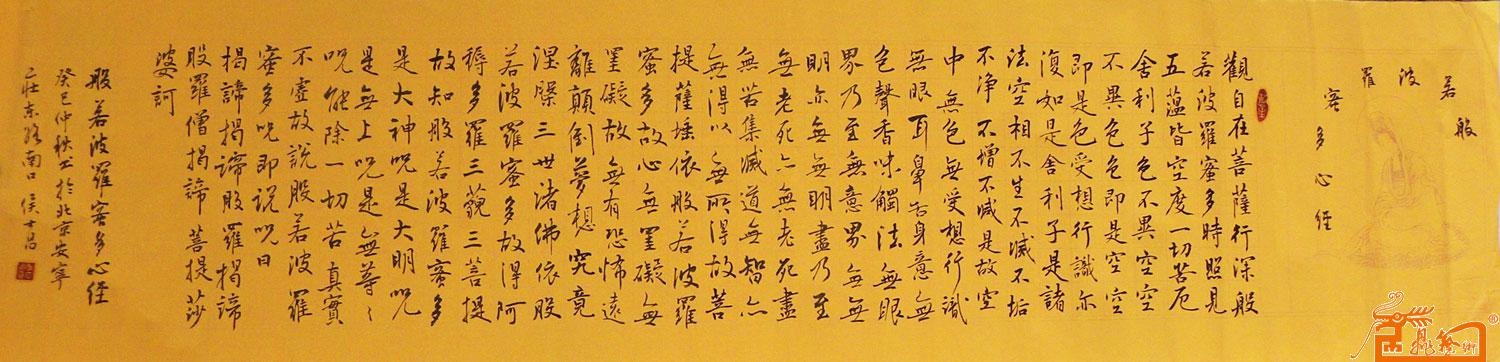 般若波羅
密多心经
觀自在菩薩行深般
若波羅蜜多時照見
五蕴皆空度一切苦厄
舍利子色不異空空
不異色色即是空空
即是色受想行識亦
復如是舍利子是諸
法空相不生不滅不垢
不净不增不減是故空
中無色無受想行識
無眼耳鼻舌身意無
色聲香味觸法無眼
界乃至無意界無無
明亦無無明盡乃至
無老死亦無老死盡
無苦集滅道無智亦
無得以無所得故菩
提薩埵依般若波羅
蜜多故心無罣礙無
罣礙故無有恐怖遠
離顛倒夢想究竟
涅槃三世诸佛依般
若波羅蜜多故得阿
耨多羅三藐三菩提
故知般若波羅蜜多
是大神咒是大明咒
是無上咒是無等々
咒能除一切苦真實
不虛故說般若波羅
蜜多咒即說咒曰
揭諦揭諦般羅揭諦
般羅僧揭諦菩提莎
婆訶
般若波羅密多心经
癸巳仲秋书於北京安寧
庄东路南口侯士昌